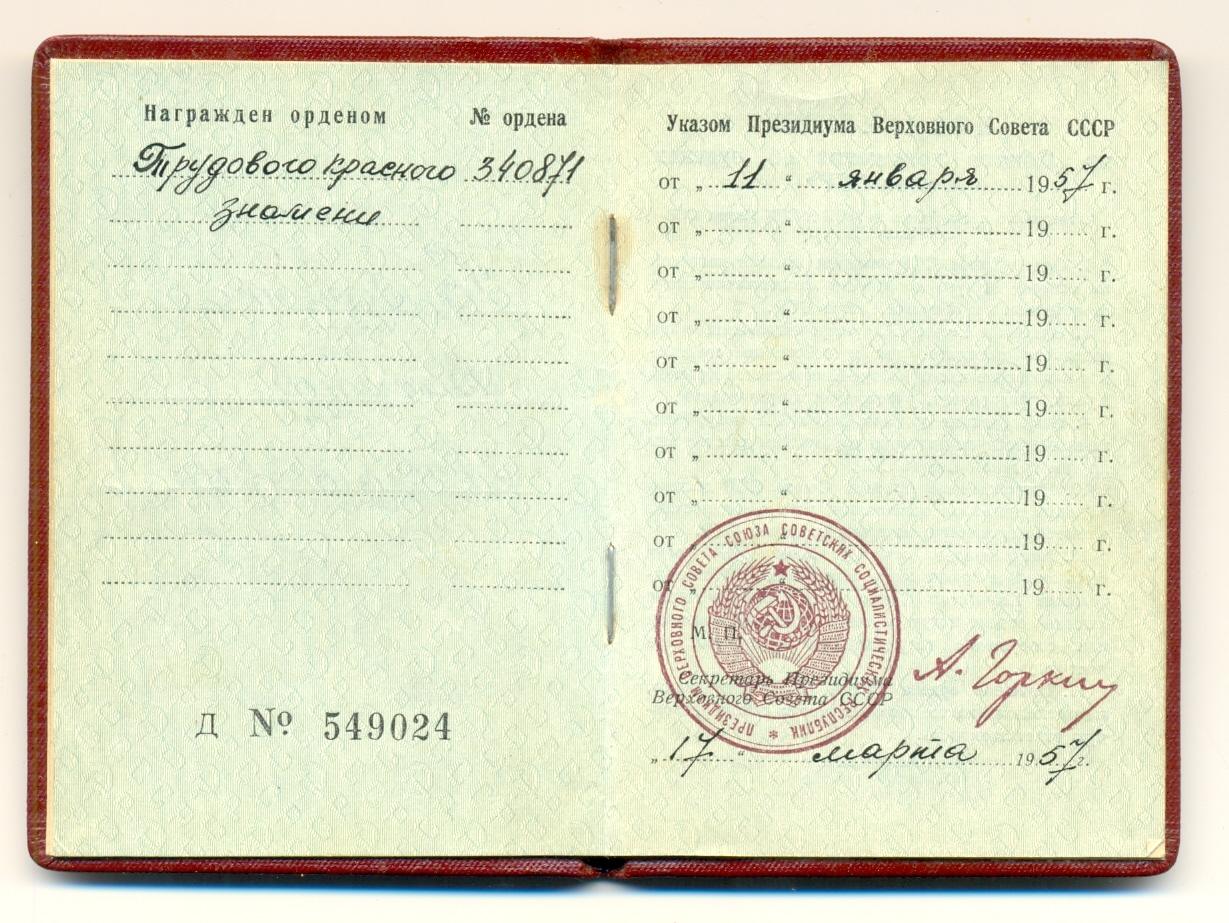 Награжден орденом № ордена
Трудового красного 340871
знамени
Д № 549024
Указом Президиума Верховного Совета СССР
от „ 11 “ января 1957 г.
от „ “ 19 г.
от „ “ 19 г.
от „ “ 19 г.
от „ “ 19 г.
от „ “ 19 г.
от „ “ 19 г.
от „ “ 19 г.
от „ “ 19 г.
от „ “ 19 г.
ПРЕЗИДИУМ ВЕРХОВНОГО СОВЕТА СОЮЗА СОВЕТСКИХ СОЦИАЛИСТИЧЕСКИХ РЕСПУБЛИК *
М. П.
Секретарь Президиума
Верховного Совета СССР
А. Горкин
„ 17 “ марта 1957 г.